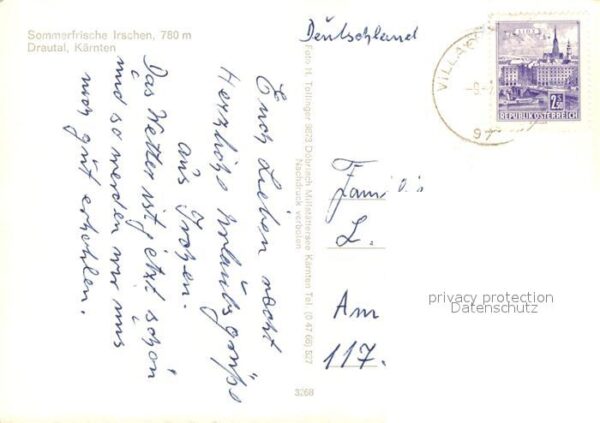 Sommerfrische Irschen, 780 m
Drautal, Kärnten
Euch Lieben recht
Herzliche Urlaubsgrüße
aus Irschen.
Das Wetter ist jetzt schön
und so werden wir uns
noch gut erholen.
Foto H. Tollinger 9873 Döbriach Millstättersee Kärnten Tel. (0 42 46) 827
Nachdruck verboten
3268
Deutschland
Familie
L.
Am
117.
VILLACH
LINZ
2.50
REPUBLIK ÖSTERREICH
privacy protection
Datenschutz